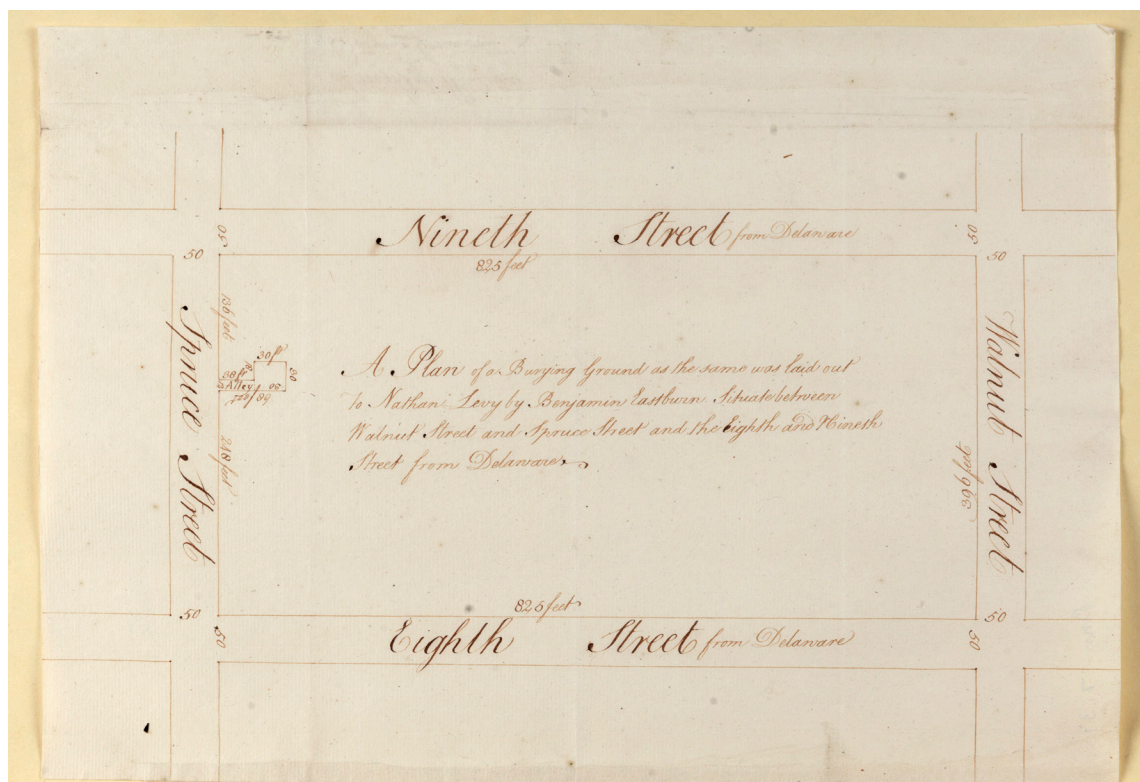 50
50
Nineth Street from Delaware
50
50
825 feet
136 feet
30 ft
38 ft
30
5 Alley
30
38 feet
Spruce Street
248 feet
A Plan of a Burying Ground as the same was laid out
to Nathan Levy by Benjamin Eastburn Situate between
Walnut Street and Spruce Street and the Eighth and Nineth
Street from Delaware
Walnut Street
396 feet
825 feet
50
50
50
Eighth Street from Delaware
50